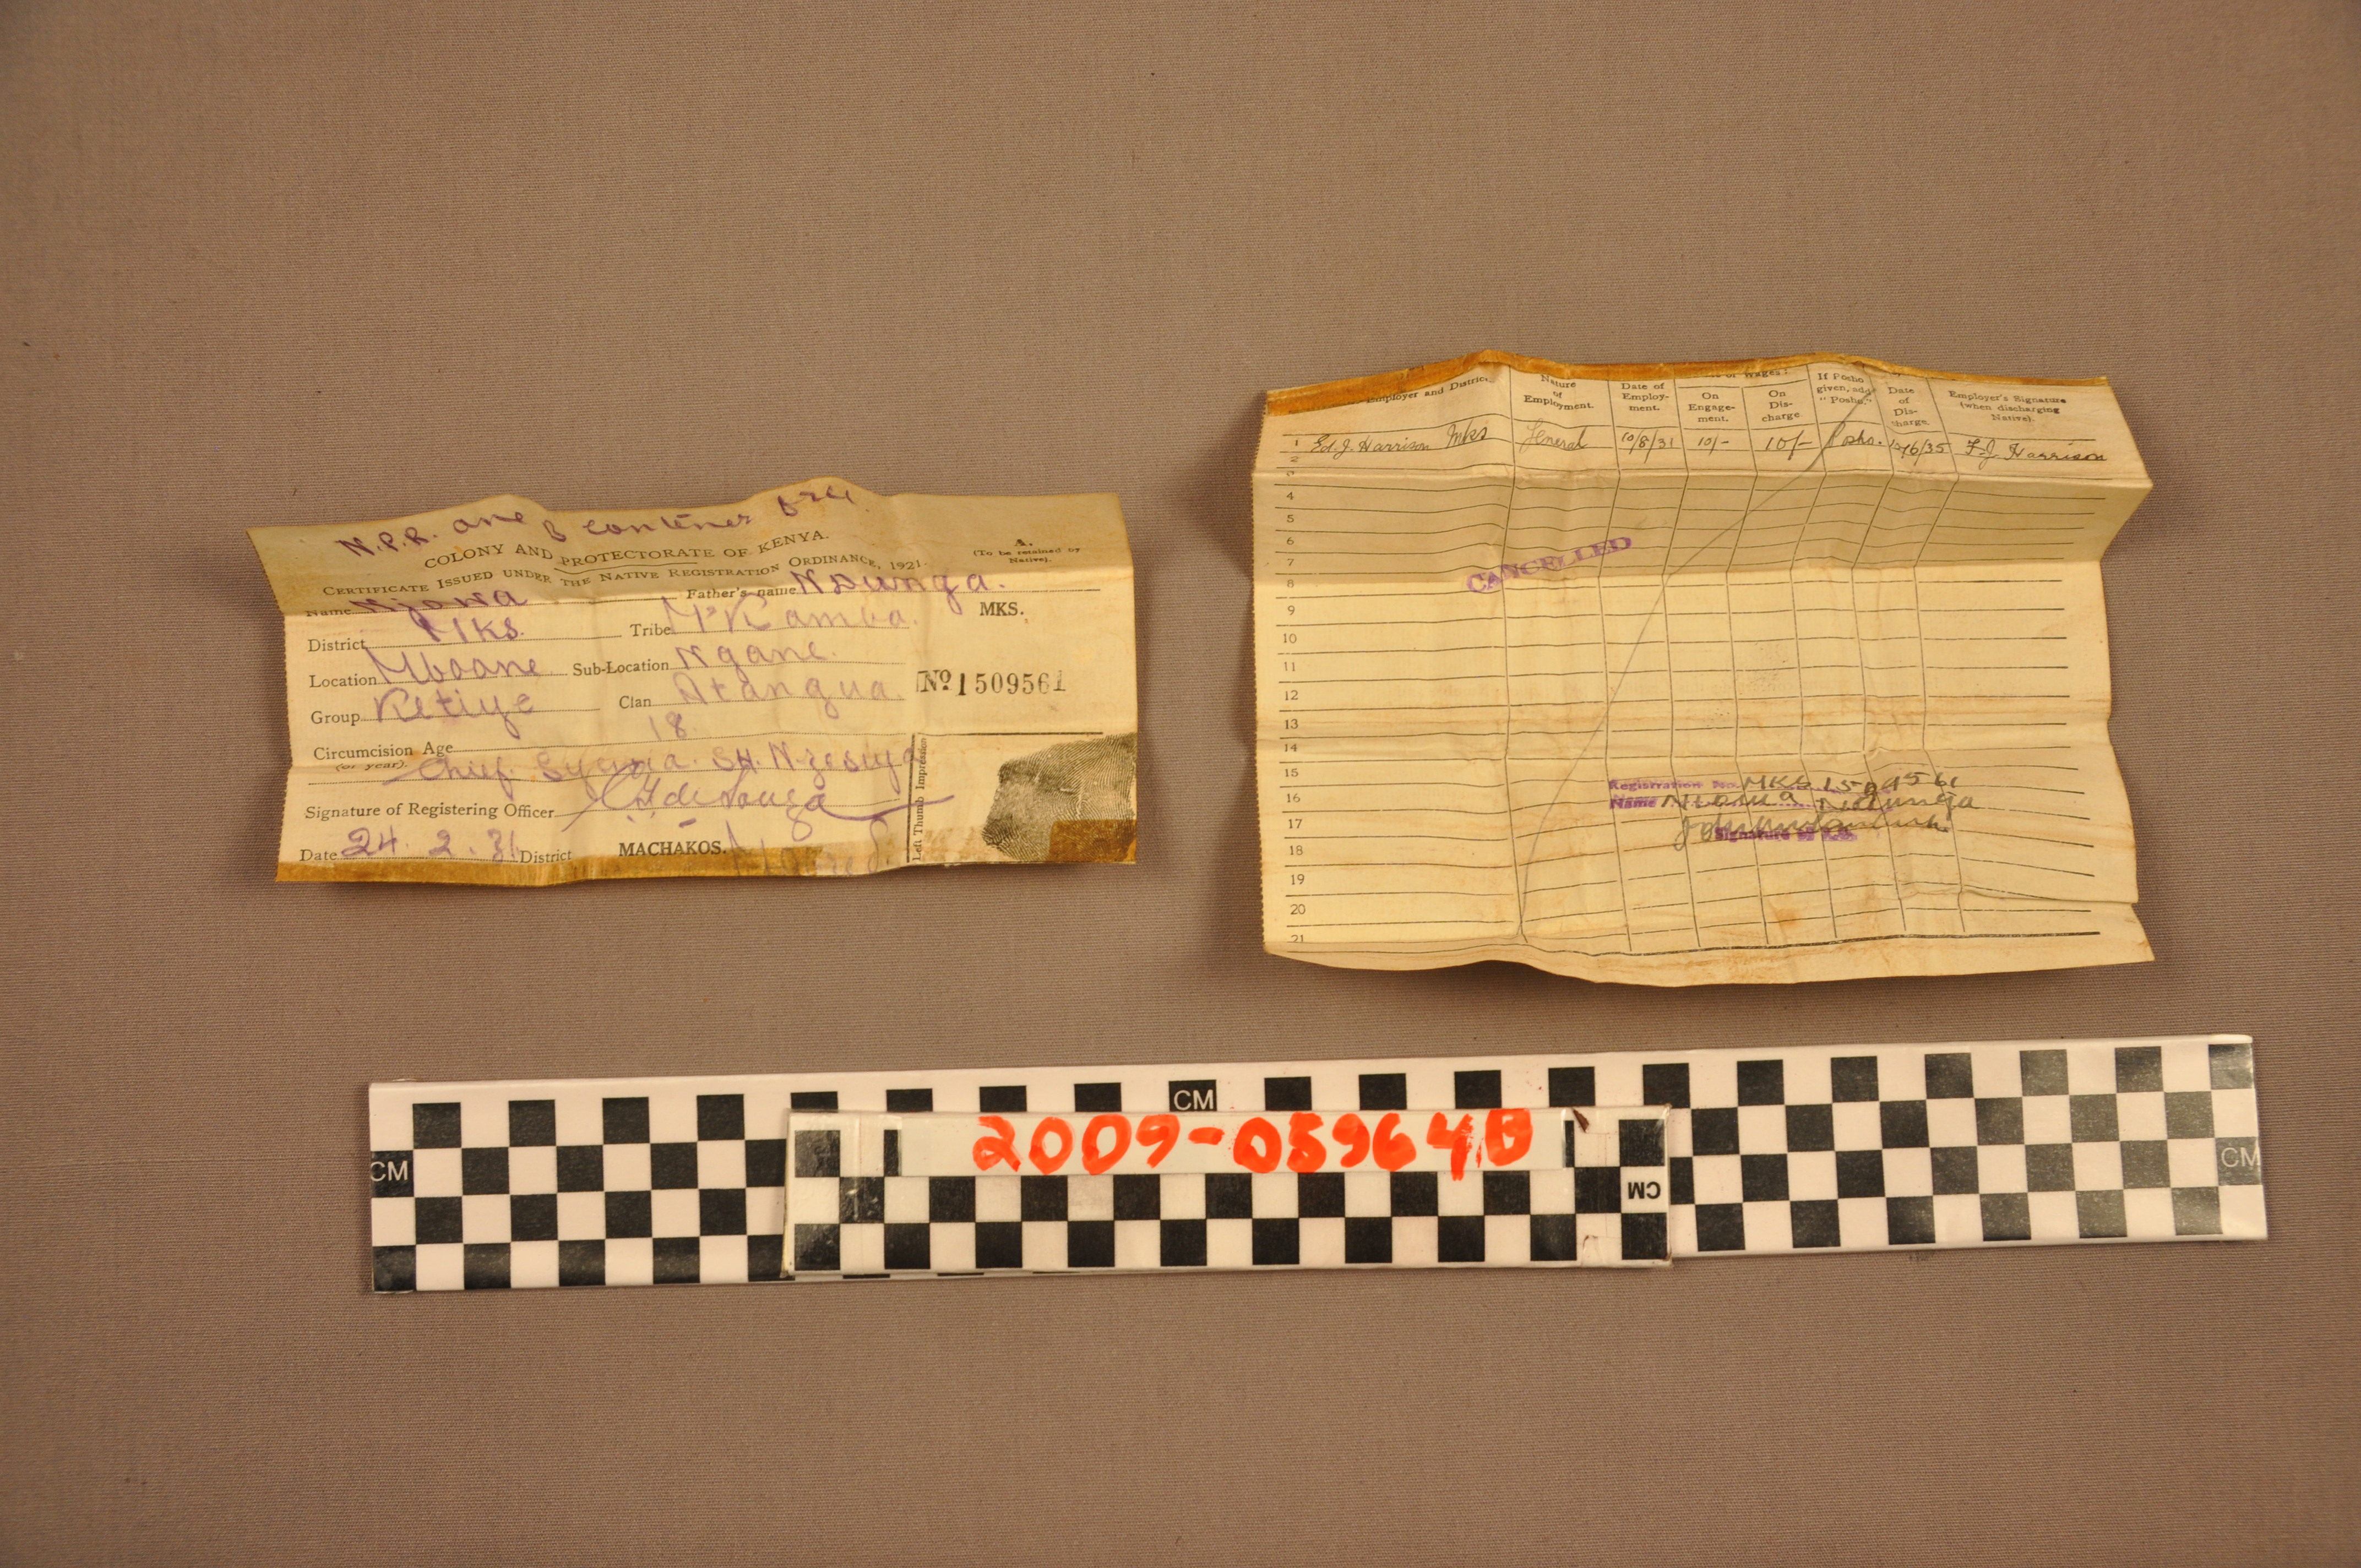 N.P.R. one & container free
COLONY AND PROTECTORATE OF KENYA.
A.
(To be retained by Native).
CERTIFICATE ISSUED UNDER THE NATIVE REGISTRATION ORDINANCE, 1921.
Name Father's name Ndunga.
MKS.
District MKS. Tribe M'Kamba.
Location Mboane Sub-Location Ngane.
Nº 1509561
Group Ketiye Clan Atangua.
Circumcision Age 18
(or year).
Chief. SH. Nzesiya
Signature of Registering Officer
Left Thumb Impression
Date 24. 2. 31 District MACHAKOS.
Employer and District.
Nature of Employment.
Date of Employment.
of Wages:
On Engagement.
On Discharge
If Posho given, add "Posho."
Date of Discharge.
Employer's Signature (when discharging Native).
1 Ed. J. Harrison Mks General 10/8/31 10/- 10/- Posho. /6/35 F.J. Harrison
2
3
4
5
6
7
CANCELLED
8
9
10
11
12
13
14
15
Registration No. MKS 1509561
16
Name Ndunga
17
Signature
18
19
20
21
CM
CM
CM
2009-05964B
CM